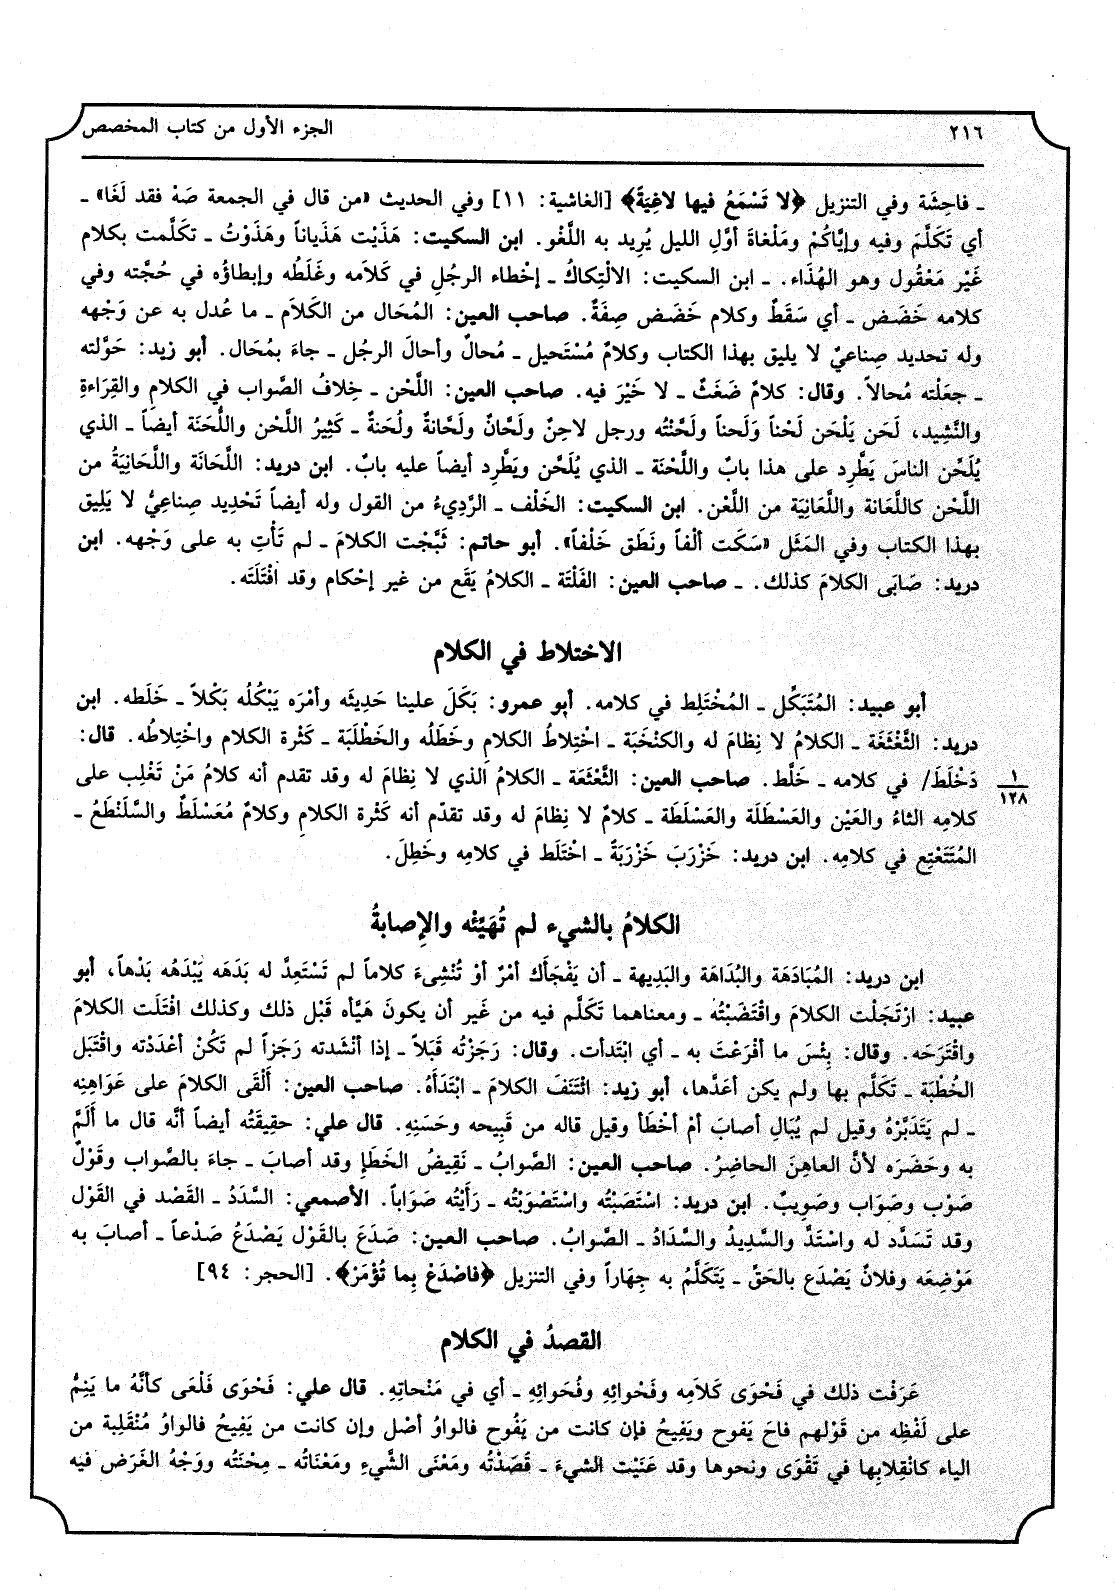 ٢١٦
الجزء الأول من كتاب المخصص
ـ فاحِشَة وفي التنزيل ﴿لا تَسْمَعُ فيها لاغِيَةً﴾ [الغاشية: ١١] وفي الحديث «من قال في الجمعة صَهْ فقد لَغَا» ـ
أي تَكَلَّمَ وفيه وإيَّاكُمْ ومَلْغاةَ أوَّلِ الليل يُرِيد به اللَّغْو. ابن السكيت: هَذَيْت هَذَياناً وهَذَوْتُ ـ تكلَّمت بكلام
غَيْر مَعْقُول وهو الهُذَاء. ـ ابن السكيت: الالْتِكاكُ ـ إخْطاء الرجُلِ في كَلاَمه وغَلَطُه وإبطاؤُه في حُجَّته وفي
كلامه خَضَض ـ أي سَقَطٌ وكلام خَضَض صِفَةٌ. صاحب العين: المُحَال من الكَلاَم ـ ما عُدل به عن وَجْهه
وله تحديد صِناعيٌ لا يليق بهذا الكتاب وكلامٌ مُسْتَحيل ـ مُحالٌ وأحالَ الرجُل ـ جاءَ بمُحَال. أبو زيد: حَوَّلته
ـ جعَلْته مُحالاً. وقال: كلامٌ ضَغَثٌ ـ لا خَيْرَ فيه. صاحب العين: اللَّحْن ـ خِلافُ الصَّواب في الكلام والقِرَاءةِ
والنَّشِيد، لَحَن يَلْحَن لَحْناً وَلَحناً ولَحَّنْتُه ورجل لاحِنٌ ولَحَّانٌ ولَحَّانةٌ ولُحَنةٌ ـ كَثِيرُ اللَّحْن واللُّحَنَة أيضاً ـ الذي
يُلَحِّن الناسَ يَطَّرِد على هذا بابٌ واللُّحْنَة ـ الذي يُلَحَّن ويَطَّرِد أيضاً عليه بابٌ. ابن دريد: اللَّحَانَة واللَّحَانِيَةُ من
اللَّحْن كاللَّعَانة واللَّعَانِيَة من اللَّعْن. ابن السكيت: الخَلْف ـ الرَّدِيءُ من القول وله أيضاً تَحْدِيد صِناعيٌّ لا يَلِيق
بهذا الكتاب وفي المَثَل «سَكَت ألْفاً ونَطَق خَلْفاً». أبو حاتم: ثَبَّجْت الكلامَ ـ لم تَأْتِ به على وَجْهه. ابن
دريد: صَابَى الكلامَ كذلك. ـ صاحب العين: الفَلْتَة ـ الكلامُ يَقَع من غير إحْكام وقد افْتَلَتَه.
الاختلاط في الكلام
أبو عبيد: المُتَبَكِّل ـ المُخْتَلِط في كلامه. أبو عمرو: بَكَلَ علينا حَدِيثَه وأمْرَه يَبْكُلُه بَكْلاً ـ خَلَطه. ابن
دريد: الثَّغْثَغَة ـ الكلامُ لا نِظامَ له والكَنْخَبَة ـ اخْتِلاطُ الكلامِ وخَطَلُه والخَطْلَبَة ـ كَثْرة الكلام واخْتِلاطُه. قال:
دَخْلَطَ/ في كلامه ـ خَلَّط. صاحب العين: الثَّعْثَعَة ـ الكلامُ الذي لا نِظامَ له وقد تقدم أنه كلامُ مَنْ تَغْلِب على
١
١٢٨
كلامِه الثاءُ والعَيْن والعَسْطَلَة والعَسْلَطَة ـ كلامٌ لا نِظامَ له وقد تقدّم أنه كَثْرة الكلامِ وكلامٌ مُعَسْلَطٌ والسَّلَنْطَعُ ـ
المُتَتَعْتِع في كلامِه. ابن دريد: خَزْرَبَ خَزْرَبَةً ـ اخْتَلَط في كلامِه وخَطِلَ.
الكلامُ بالشيء لم تُهَيِّئْه والإِصابةُ
ابن دريد: المُبَادَهَة والبُدَاهَة والبَدِيهة ـ أن يَفْجَأَك أمْرٌ أوْ تُنْشِىءَ كلاماً لم تَسْتَعِدَّ له بَدَهَه يَبْدَهُه بَدْهاً، أبو
عبيد: ارْتَجَلْت الكلامَ واقْتَضَبْتُه ـ ومعناهما تَكَلَّم فيه من غَير أن يكونَ هَيَّأه قَبْل ذلك وكذلك افْتَلَت الكلامَ
واقْتَرَحَه. وقال: بِئْسَ ما أفْرَعْتَ به ـ أي ابْتَدأت. وقال: رَجَزْتُه قَبَلاً ـ إذا أنْشَدته رَجَزاً لم تَكُنْ أعْدَدْته واقْتَبَل
الخُطْبَة ـ تَكَلَّم بها ولم يكن أعَدَّها، أبو زيد: ائْتَنَفَ الكلامَ ـ ابْتَدَأَهُ. صاحب العين: أَلْقَى الكلامَ على عَوَاهِنِه
ـ لم يَتَدَبَّرْهُ وقيل لم يُبَالِ أصابَ أمْ أخْطَأ وقيل قاله من قَبِيحه وحَسَنِهِ. قال علي: حقِيقَتُه أيضاً أنَّه قال ما أَلَمَّ
به وحَضَرَه لأنَّ العاهِنَ الحاضِرُ. صاحب العين: الصَّوابُ ـ نَقِيضُ الخَطَإِ وقد أصابَ ـ جاءَ بالصَّواب وقَوْلٌ
صَوْب وصَوَاب وصَوِيبٌ. ابن دريد: اسْتَصَبْتُه واسْتَصْوَبْتُه ـ رَأَيْتُه صَوَاباً. الأصمعي: السَّدَدُ ـ القَصْد في القَوْل
وقد تَسَدَّد له واسْتَدَّ والسَّدِيدُ والسَّدَادُ ـ الصَّوابُ. صاحب العين: صَدَعَ بالقَوْل يَصْدَعُ صَدْعاً ـ أصابَ به
مَوْضِعَه وفلانٌ يَصْدَع بالحَقِّ ـ يَتَكَلَّمُ به جِهَاراً وفي التنزيل ﴿فاصْدَعْ بِما تُؤْمَرُ﴾. [الحجر: ٩٤]
القصدُ في الكلام
عَرَفْت ذلك في فَحْوَى كَلاَمِه وفَحْوائِهِ وفُحَوائِهِ ـ أي في مَنْحاتِهِ. قال علي: فَحْوَى فَلْعَى كأنَّهُ ما يَنِمُّ
على لَفْظِه من قَوْلهم فاحَ يَفوح ويَفِيحُ فإن كانت من يَفُوح فالواوُ أصْل وإن كانت من يَفِيحُ فالواوُ مُنْقَلِبة من
الياء كانْقِلابِها في تَقْوَى ونحوها وقد عَنَيْت الشيءَ ـ قَصَدْتُه ومَعْنَى الشَّيءِ ومَعْنَاتُه ـ مِحْنَتُه ووَجْهُ الغَرَض فيه